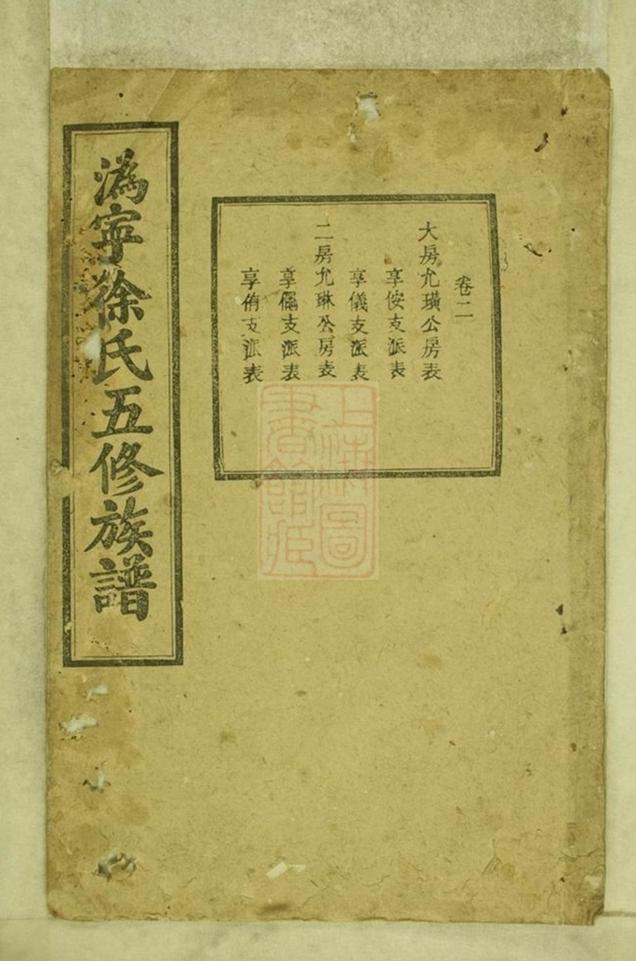 溈寧徐氏五修族譜
卷二
大房允璜公房表
享侒支派表
享儀支派表
二房允琳公房表
享儡支派表
享侑支派表
上海圖
書館藏